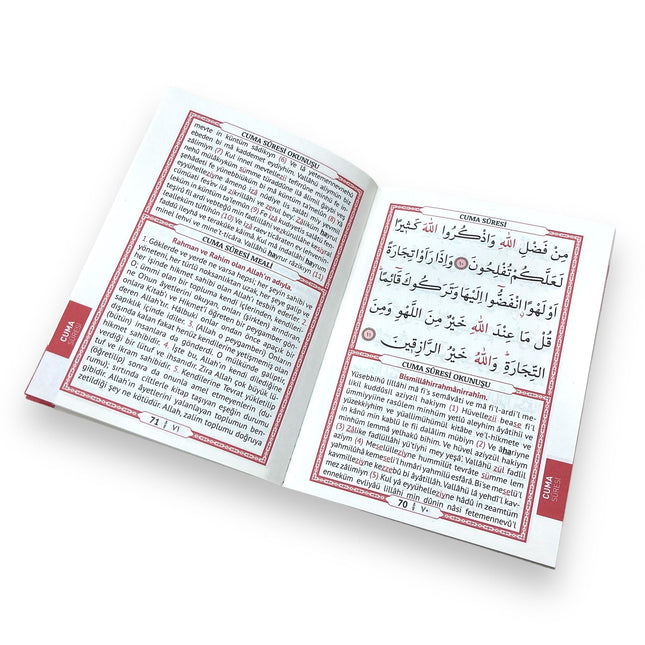 CUMA SÛRESİ
مِنْ فَضْلِ اللّٰهِ وَاذْكُرُوا اللّٰهَ كَثِيرًا
لَعَلَّكُمْ تُفْلِحُونَ ﴿١٠﴾ وَاِذَا رَاَوْا تِجَارَةً
اَوْ لَهْوًا انْفَضُّٓوا اِلَيْهَا وَتَرَكُوكَ قَٓائِمًا
قُلْ مَا عِنْدَ اللّٰهِ خَيْرٌ مِنَ اللَّهْوِ وَمِنَ
التِّجَارَةِ وَاللّٰهُ خَيْرُ الرَّازِقِينَ ﴿١١﴾
CUMA SÛRESİ OKUNUŞU
Bismillâhirrahmânirrahîm.
Yüsebbihû lillâhi mâ fi's semâvâti ve mâ fi'l-ardi'l me-
likil kuddûsil azîzil hakîym (1) Hüvellezî bease fi'l
ümmiyyîne rasûlem minhüm yetlû aleyhim âyâtihî ve
yüzekkîyhim ve yüallimühümül kitâbe ve'l-hikmete ve
in kânû min kablü le fîi dalâlim mübîyn (2) Ve âhariyne
minhüm lemmâ yelhakû bihim. Ve hüvel azîyzül hakîym
(3) Zâlike fadlüllâhi yü'tîyhi mey yeşâ'. Vallâhü zül fadlil
azîym (4) Meselüllezîyne hummilüt tevrâte sümme lem
yahmilûhâ kemeseli'l hımâri yahmilü esfârâ. Bi'se meselü'l
kavmillezîyne kezzebû bi âyâtillah. Vallâhü lâ yehdi'l kav-
mez zâlimîyn (5) Kul yâ eyyühellezîyne hâdû in zeamtüm
enneküm evliyâü lillâhi min dûnin nâsi fetemennevü'l
70 ٧٠
CUMA
SÛRESİ
CUMA SÛRESİ OKUNUŞU
mevte in küntüm sâdikıyn (6) Ve lâ yetemennevnehû
ebeden bi mâ kaddemet eydîyhim. Vallâhü alîymün biz
zâlimîyn (7) Kul innel mevtellezî tefirrûne minhü fe in-
nehû mülâkıyküm sümme türaddûne ilâ âlimil ğaybi veş
şehâdeti fe yünebbiüküm bi mâ küntüm ta'melûn (8) Yâ
eyyühellezîyne âmenû izâ nûdiye lis salâti miy yevmi'l
cümüati fes'ev ilâ zikrillâhi ve zerul bey' Zâliküm hayrul
leküm in küntüm ta'lemûn (9) Fe izâ kudıyetis salâtü fen-
teşirû fil ardı vebteğû min fadlillâhi vezkürullâhe kesîyral
lealleküm tüflihûn (10) Ve izâ raev ticâraten ev lehvenin-
faddû ileyhâ ve terakûke kâimâ. Kul mâ ındallâhi hayrum
minel lehvi ve mine't-ticâra. Vallâhü hayrur râzikıyn (11)
CUMA SÛRESİ MEALİ
Rahman ve Rahim olan Allah'ın adıyla.
1. Göklerde ve yerde ne varsa hepsi; her şeyin sahibi ve
yöneteni, her türlü noksanlıktan uzak, her şeye gâlip olan,
her işinde hikmet sahibi olan Allah'ı tesbih ederler. 2.
O; ümmi olan bir topluma kendi içlerinden, kendileri-
ne Onun âyetlerini okuyan, onları (şirkten) arındıran,
onlara Kitab'ı ve Hikmet'i öğreten bir peygamber gön-
deren Allah'tır. Hâlbuki onlar ondan önce apaçık bir
sapıklık içinde idiler. 3. (Allah o Peygamberi) Onların
dışında kalan fakat henüz kendilerine katılmamış olan
(bütün) insanlara da gönderdi. O mülkünde galiptir,
hikmet sahibidir. 4. İşte bu, Allah'ın kendi dilediğine
verdiği bir lütuf ve ihsanıdır. Zira Allah çok büyük lü-
tuf ve ikram sahibidir. 5. Kendilerine Tevrat yükletilip
(öğretilip) sonra da onunla amel etmeyenlerin (du-
rumu); sırtında ciltlerle kitap taşıyan eşeğin durumu
gibidir. Allah'ın âyetlerini yalanlayan toplumun ben-
zetildiği şey ne kötüdür. Allah, zalim toplumu doğruya
71 ٧١
CUMA
SÛRESİ